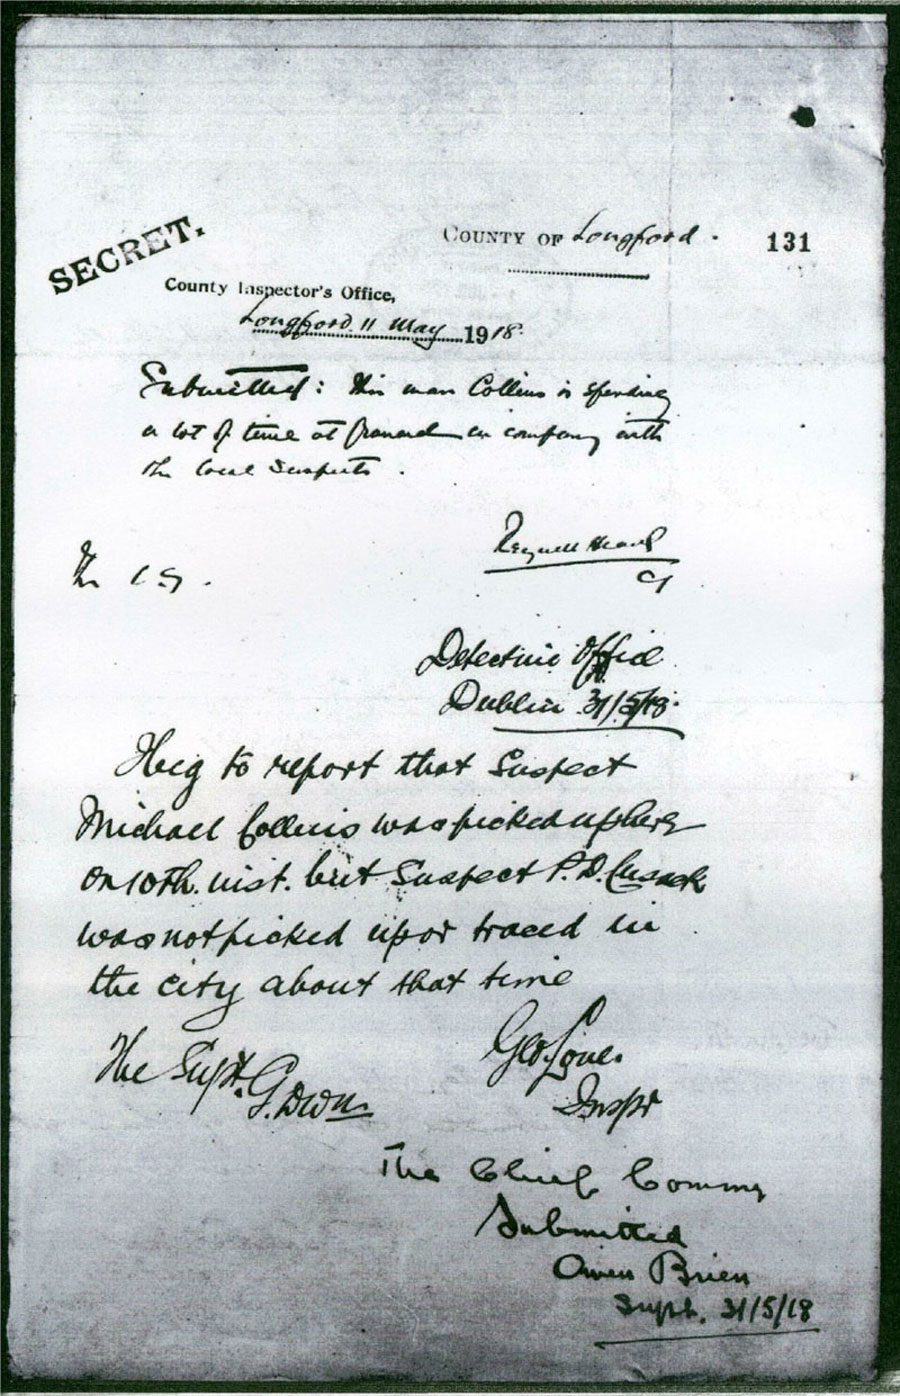 SECRET.
COUNTY OF Longford. 131
County Inspector's Office,
Longford 11 May 1918
Submitted: This man Collins is spending
a lot of time at Granard in company with
the local suspects.
The I.G.
CI
Detective Office
Dublin 31/5/18.
I beg to report that Suspect
Michael Collins was picked up here
on 10th. inst. but Suspect P. D. Cusack
was not picked up or traced in
the city about that time
The Supt. G. Divn. Geo. Love.
Inspr
The Chief Commr
Submitted
Owen Brien
Supt. 31/5/18